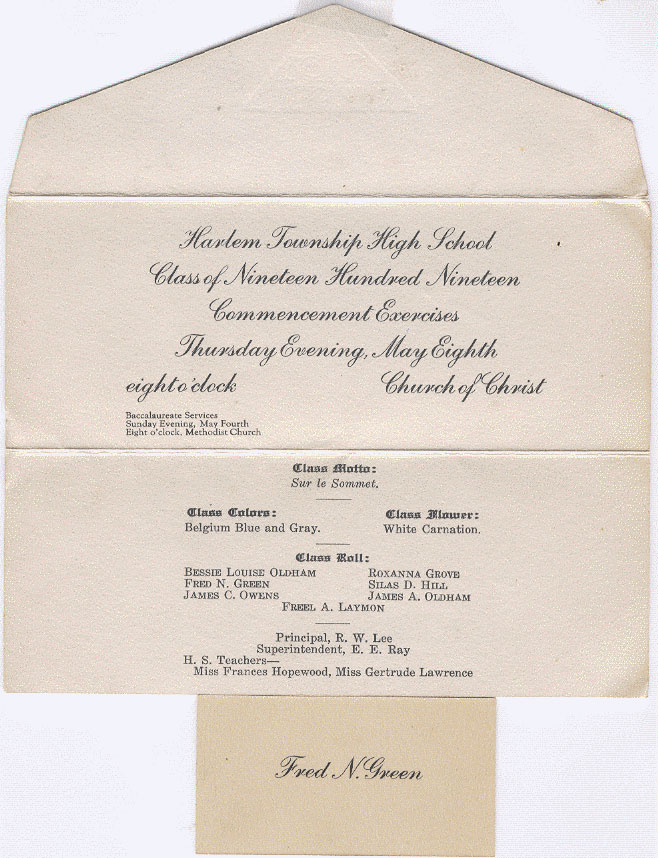 Harlem Township High School
Class of Nineteen Hundred Nineteen
Commencement Exercises
Thursday Evening, May Eighth
eight o'clock Church of Christ
Baccalaureate Services
Sunday Evening, May Fourth
Eight o'clock. Methodist Church
Class Motto:
Sur le Sommet.
Class Colors: Class Flower:
Belgium Blue and Gray. White Carnation.
Class Roll:
BESSIE LOUISE OLDHAM ROXANNA GROVE
FRED N. GREEN SILAS D. HILL
JAMES C. OWENS JAMES A. OLDHAM
FREEL A. LAYMON
Principal, R. W. Lee
Superintendent, E. E. Ray
H. S. Teachers—
Miss Frances Hopewood, Miss Gertrude Lawrence
Fred N. Green